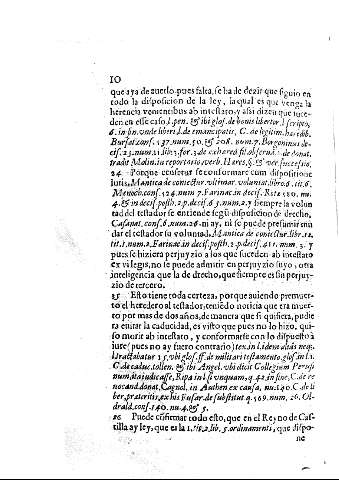 10
que aya de auerlo, pues falta, se ha de dezir que siguio en
todo la disposicion de la ley, la qual es que venga la
herencia venientibus ab intestato, y assi dizen que suce-
den en este caso, l. pen. & ibi glos. de bonis libertor. l. scripto,
6. in fin. vnde liberi, l. de emancipatis, C. de legitim. hæredib.
Bursat. cons. 137. num. 50. & 208. num. 7. Borgominus de-
cis. 23. num. 21. lib. 3.
tradit Molin. in reportorio, verb. Hæres, §. & ver. successio.
24 Porque censetur se conformare cum dispositione
iuris, Mantica de coniectur. vltimar. voluntat. libr. 6. tit. 6.
Menoch. cons. 124. num. 7. Farinac. in decis. Rote 180. nu.
4. & in decis. posth. 2. p. decis. 63. num. 2. y siempre la volun
tad del testador se entiende segū disposicion de derecho,
Casanat. cons. 6. num. 26. ni ay, ni se puede presumir mu
dar el testador su voluntad, Mantica de coniectur. libr. 12.
tit. 1. num. 2. Farinac. in decis. posth. 2. p. decis. 411. num. 3. y
pues se hiziera perjuyzio a los que suceden ab intestato
ex vi legis, no se puede admitir en perjuyzio suyo, otra
inteligencia que la de derecho, que siempre es sin perjuy-
zio de tercero.
25 Esto tiene toda certeza, porque auiendo premuer-
to el heredero al testador, teniēdo noticia que era muer-
to por mas de dos años, de manera que si quisiera, pudie
ra euitar la caducidad, es visto que pues no lo hizo, qui-
so morir ab intestato, y conformarse con lo dispuesto à
iure (pues no ay fuero contrario)
tractabatur 15. vbi glos. ff. de militari testamento, glos. in l. 1.
C. de caduc. tollen. & ibi Angel. vbi dicit Collegium Perusi
num, ita iudicasse, Ripa in l. si vnquam, q. 42. in fine, C. de re
nocand. donat. Cagnol. in Authen. ex causa, nu. 140. C. de li
ber. præteritis, ex his Fusar. de substitut. q. 509. num. 26. Ol-
drald. cons. 140. nu. 4. & 5.
26 Puede cōfirmar todo esto, que en el Reyno de Cas-
tilla ay ley, que es la 1. tit. 2. lib. 5. ordinamenti, que dispo
ne